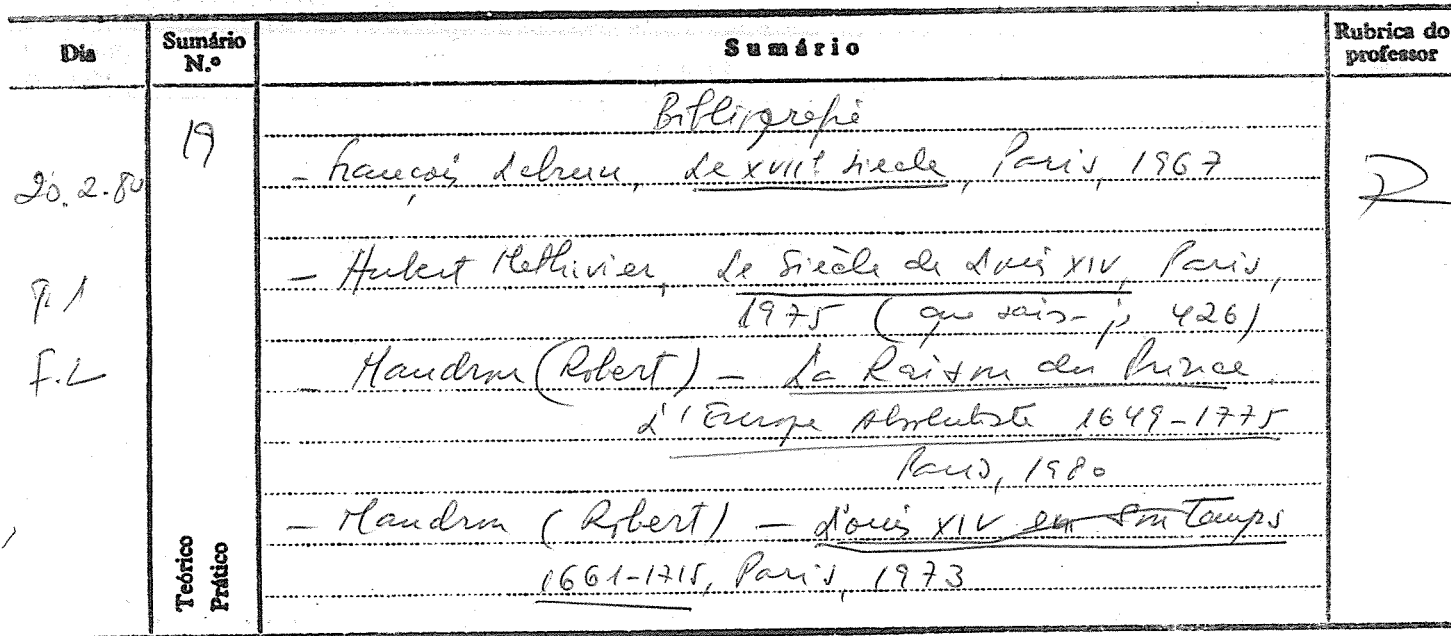 Dia Sumário N.º Sumário Rubrica do professor
19 Bibliografie
20.2.80 - François Lebrun, Le XVIIe siecle, Paris, 1967
- Hubert Methivier, Le Siècle de Louis XIV, Paris,
1975 (que sais-je 426)
F.L - Mandrou (Robert) - La Raison du Prince
L'Europe Absolutiste 1649-1775
Paris, 1980
- Mandrou (Robert) - Louis XIV en son Temps
1661-1715, Paris, 1973
Teórico
Prático